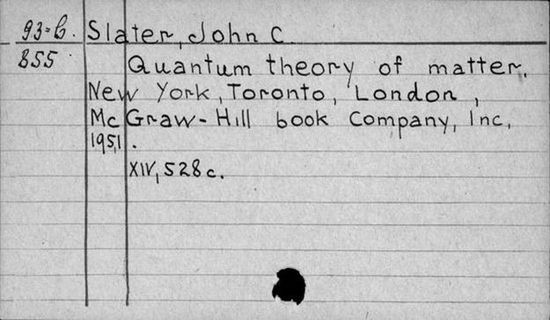 93-6. Slater, John C.
855
Quantum theory of matter.
New York, Toronto, London,
McGraw-Hill book Company, Inc,
1951.
XIV, 528 c.